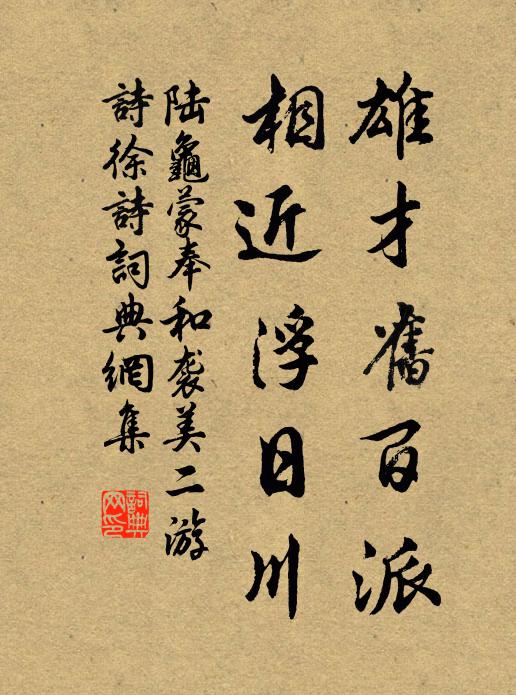 雄才奮百派
相近浮日川
陆龜蒙奉和袭美二游
詩徐詩詞典網集
詞典网印